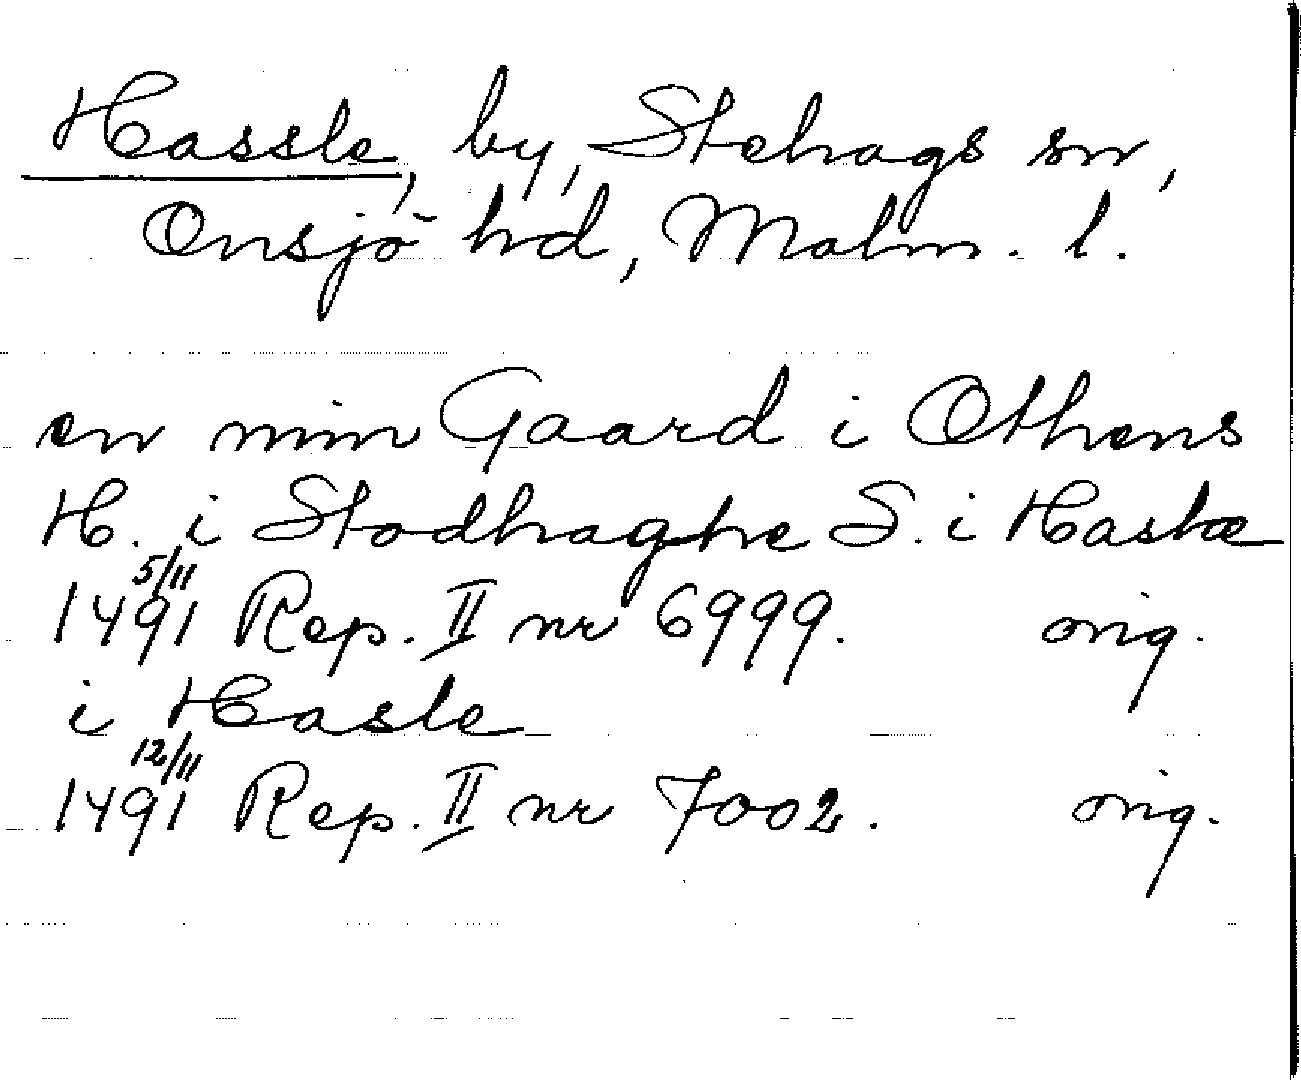 Hassle, by, Stehags sn,
Onsjö hd, Malm. l.
en min Gaard i Othens
H. i Stodhaghe S. i Haslæ
5/11
1491 Rep. II nr 6999. orig.
i Hasle
12/11
1491 Rep. II nr 7002. orig.